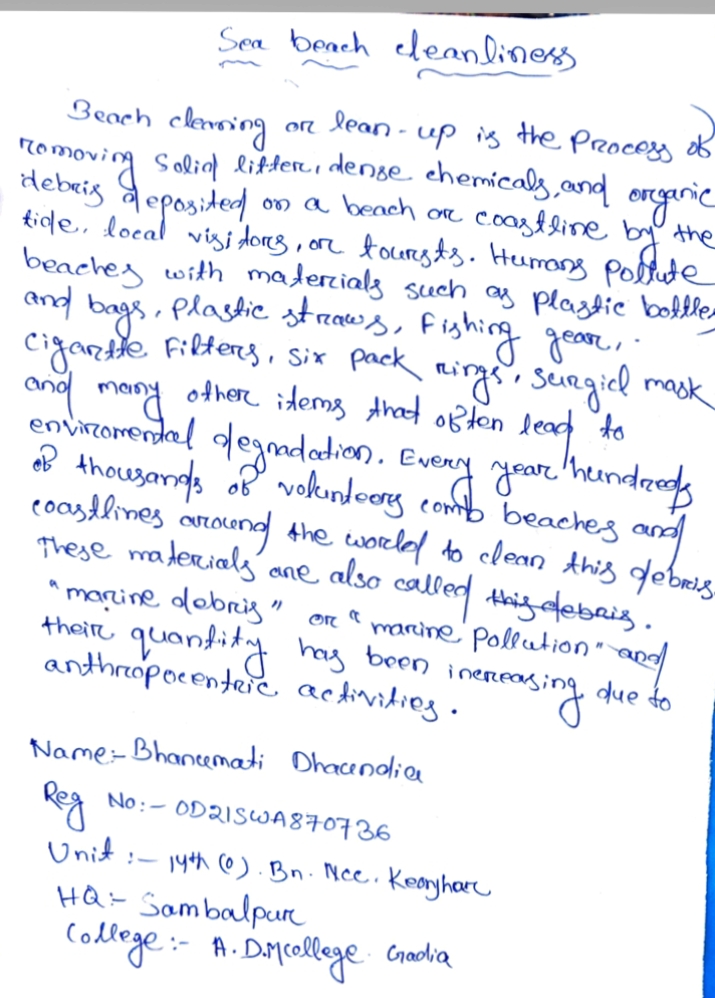 Sea beach cleanliness
Beach cleaning or lean-up is the Process of
romoving Solid litter, dense chemicals, and organic
debris deposited on a beach or coastline by the
tide, local visitors, or toursts. Humans Pollute
beaches with materials such as plastic bottles
and bags, Plastic straws, Fishing gear,
cigartte Filters, six pack rings, surgicl mask
and many other items that often lead to
enviromental degradation. Every year hundreds
of thousands of volunteers comb beaches and
coastlines around the world to clean this debris.
These materials are also called this debris.
"marine debris" or "marine pollution" and
their quantity has been increasing due to
anthropocentric activities.
Name:- Bhanumati Dhaundia
Reg No:- OD21SWA870736
Unit :- 14th (O). Bn. Ncc. Keonjhar
HQ:- Sambalpur
College:- A.D.Mcollege. Gadia